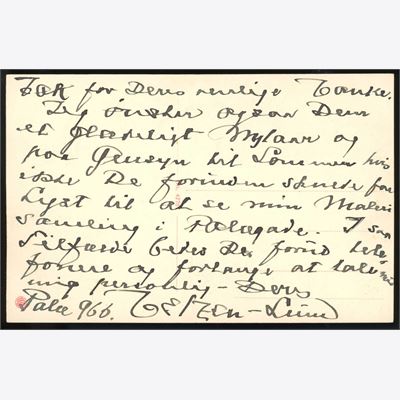 Tak for Deres venlige Tanke.
Jeg ønsker ogsaa Dem
et glædeligt Nytaar og
paa Gensyn til Sommer hvis
ikke De forinden skulde faa
Lyst til at se min Maleri
samling i Palægade. I saa
Tilfælde bedes De forud tele
fonere og forlange at tale
mig personlig - Deres
Palæ 966.